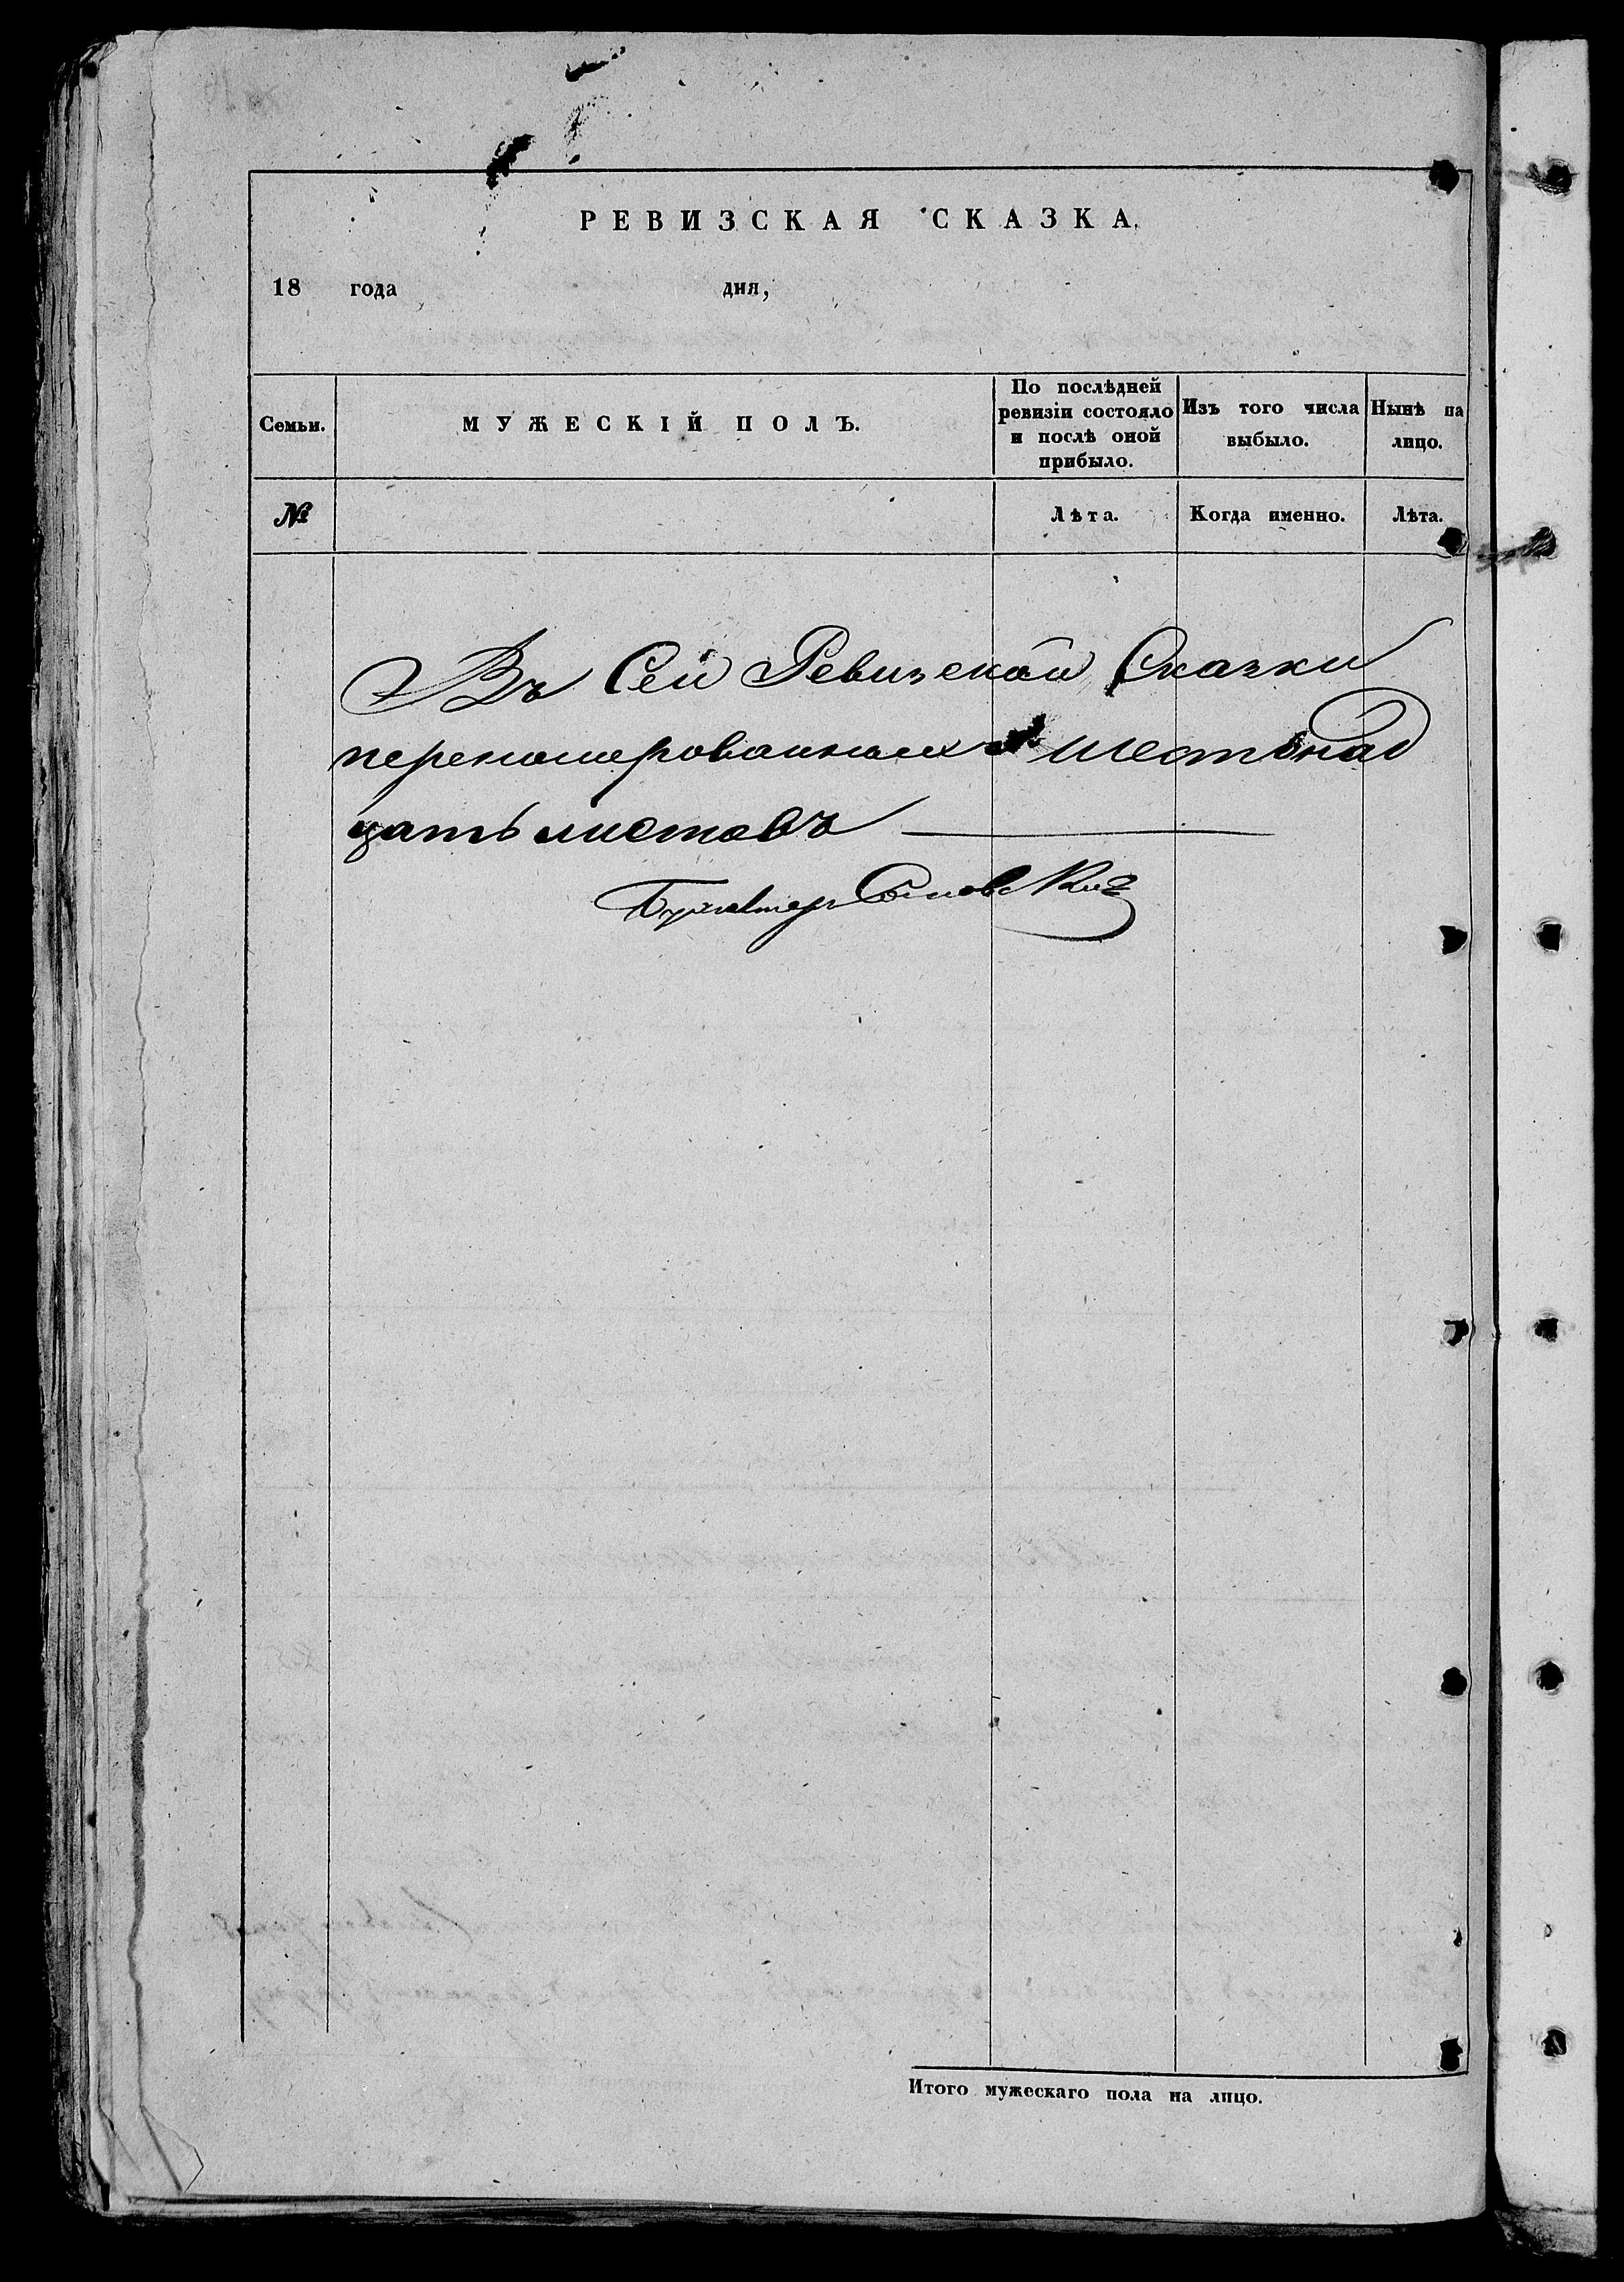 РЕВИЗСКАЯ СКАЗКА.
18 года дня,
Семьи.
МУЖЕСКІЙ ПОЛЪ.
По послѣдней
ревизіи состояло
и послѣ оной
прибыло.
Изъ того числа
выбыло.
Нынѣ на
лицо.
№
Лѣта.
Когда именно.
Лѣта.
Въ Сей Ревизской Сказки
переномерованныхъ шестьнад
цать листовъ
Бухгалтеръ
Итого мужескаго пола на лицо.